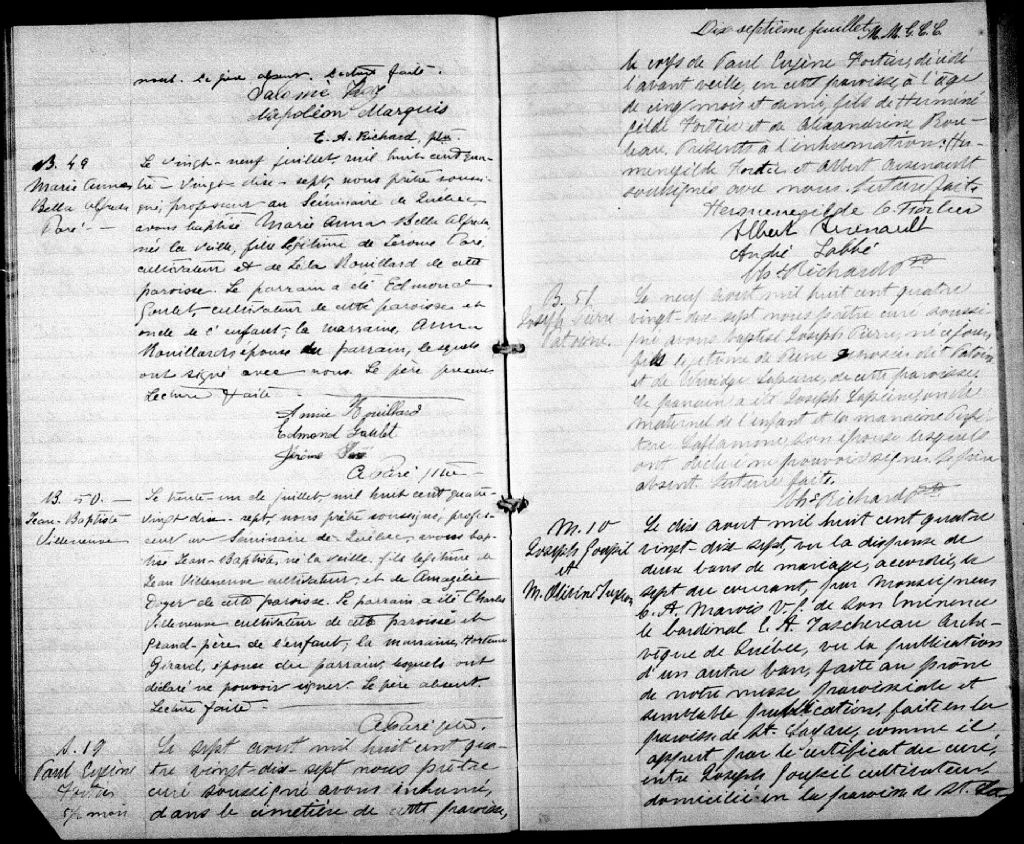 nent. Le père absent. Lecture faite.
Salomé
Napoléon Marquis
C. A. Richard, ptre
B. 49
Marie Anna
Bella Alfreda
Paré. —
Le vingt-neuf juillet, mil huit cent qua-
tre-vingt-dix-sept, nous prêtre soussi-
gné, professeur au Séminaire de Québec
avons baptisé Marie Anna Bella Alfreda
née la veille, fille légitime de Jérôme Paré,
cultivateur et de Léda Rouillard de cette
paroisse. Le parrain a été Edmond
Goulet cultivateur de cette paroisse et
oncle de l'enfant, la marraine, Anna
Rouillard épouse du parrain, lesquels
ont signé avec nous. Le père présent
Lecture faite.
Annie Rouillard
Edmond Goulet
Jérôme
A. Paré ptre
B. 50. —
Jean-Baptiste
Villeneuve
Le trente un de juillet, mil huit cent quatre-
vingt-dix-sept, nous prêtre soussigné, profes-
seur au Séminaire de Québec, avons bap-
tisé Jean-Baptiste, né la veille, fils légitime de
Jean Villeneuve cultivateur, et de Amazélie
Doyer de cette paroisse. Le parrain a été Charles
Villeneuve cultivateur de cette paroisse et
Grand-père de l'enfant; la marraine, Hortense
Girard, épouse du parrain, lesquels ont
déclaré ne pouvoir signer. Le père absent.
Lecture faite.
A. Paré ptre.
S. 19
Paul Eugène
Fortier
5½ mois
Le sept août mil huit cent qua-
tre vingt-dix-sept nous prêtre
curé soussigné avons inhumé,
dans le cimetière de cette paroisse,
Dix septième feuillet M. M. C. C. C.
le corps de Paul Eugène Fortier, décédé
l'avant veille, en cette paroisse, à l'âge
de cinq mois et demi, fils de Hermené
gilde Fortier et de Alexandrine Bou-
leau. Présents à l'inhumation: Her-
menegilde Fortier et Albert Arsenault
soussignés avec nous. Lecture faite.
Hermenegilde C. Fortier
Albert Arsenault
André Labbé
Chs Richard Ptre
B. 51
Joseph Pierre
Patoine
Le neuf août mil huit cent quatre
vingt-dix sept nous prêtre curé soussi-
gné avons baptisé Joseph Pierre, né ce jour,
fils légitime de Pierre dit Patoine
et de Lapierre, de cette paroisse.
Le parrain a été Joseph Lapierre, oncle
maternel de l'enfant et la marraine
Laflamme, son épouse lesquels
ont déclaré ne pouvoir signer. Le père
absent. Lecture faite.
Chs Richard Ptre
M. 10
Joseph Goupil
et
M. Olivine
Le dix août mil huit cent quatre
vingt-dix sept, vu la dispense de
deux bans de mariage, accordée, le
sept du courant, par Monseigneur
C. A. Marois V. G. de Son Eminence
le Cardinal E. A. Taschereau Arche-
vêque de Québec, vu la publication
d'un autre ban, faite au prône
de notre messe paroissiale et
semblable publication, faite en la
paroisse de St. Lazare, comme il
appert par le certificat du curé,
entre Joseph Goupil cultivateur,
domicilié en la paroisse de St. La